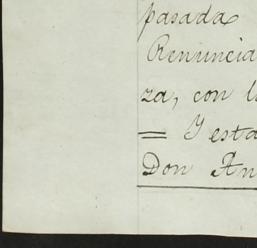 pasada
Renuncia
za, con l
= Y esta
Don An